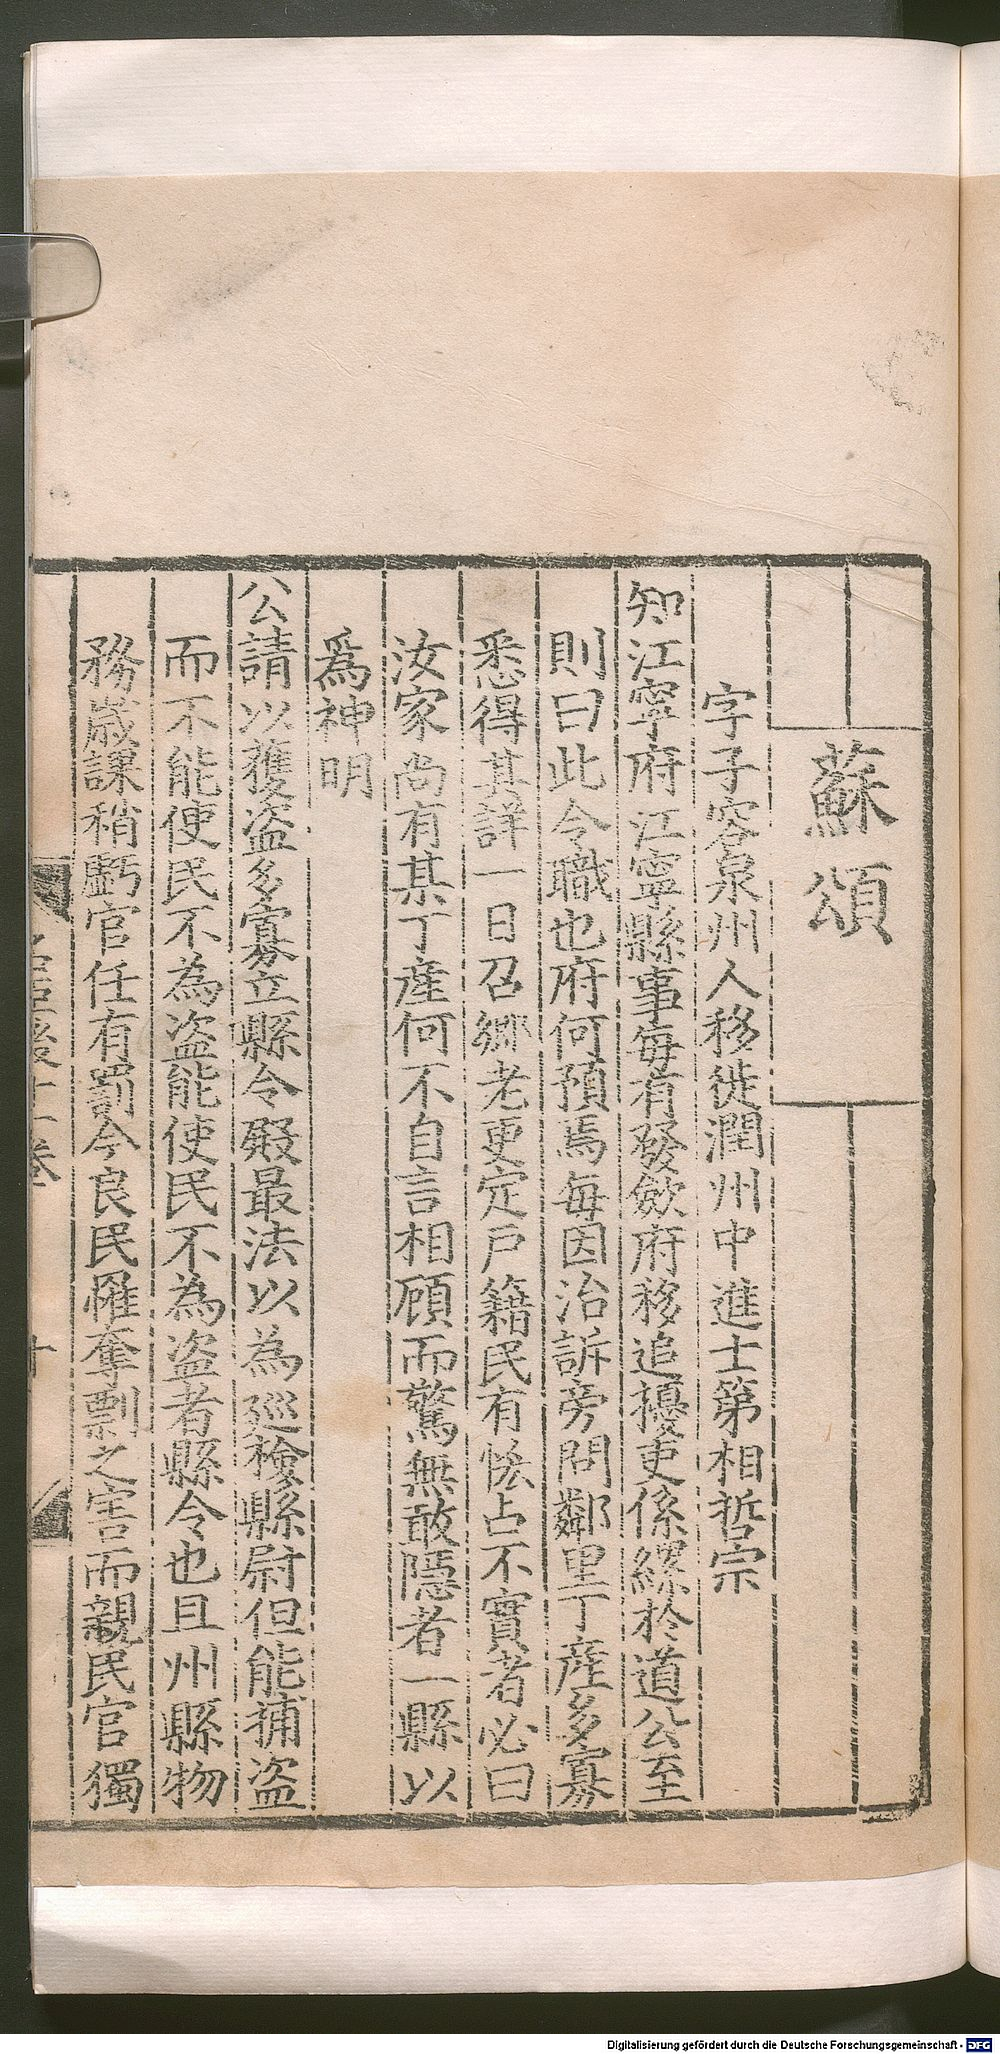 蘇頌
字子容泉州人移徙潤州中進士第相哲宗
知江寧府江寧縣事每有發斂府移追擾吏係縲於道公至
則曰此令職也府何預焉每因治訴旁問鄰里丁產多寡
悉得其詳一日召鄉老更定戶籍民有恡占不實者必曰
汝家尚有某丁產何不自言相顧而驚無敢隱者一縣以
爲神明
公請以獲盗多寡立縣令殿最法以為廵檢縣尉但能捕盗
而不能使民不為盗能使民不為盗者縣令也且州縣物
務歲課稍虧官任有罰今良民罹奪剽之害而親民官獨
Digitalisierung gefördert durch die Deutsche Forschungsgemeinschaft - DFG